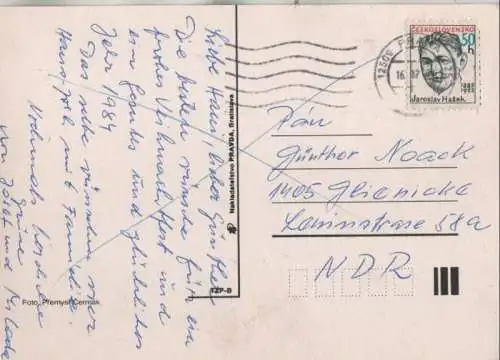 Liebe Hansi, lieber Günther
Die besten Wünsche für ein
frohes Weihnachtsfest und
ein gesundes und glückliches
Jahr 1984
Das alles wünschen wir
Hansi, mit Familie.
Nochmals herzliche
Grüße
von Josef und Milada
Foto: Přemysl Čermák
Nakladatelstvo PRAVDA, Bratislava
TZP-B
ČESKOSLOVENSKO
50
Jaroslav Hašek
1883
1923
Pán
Günther Noack
1405 Glienicke
Leninstrasse 58a
NDR